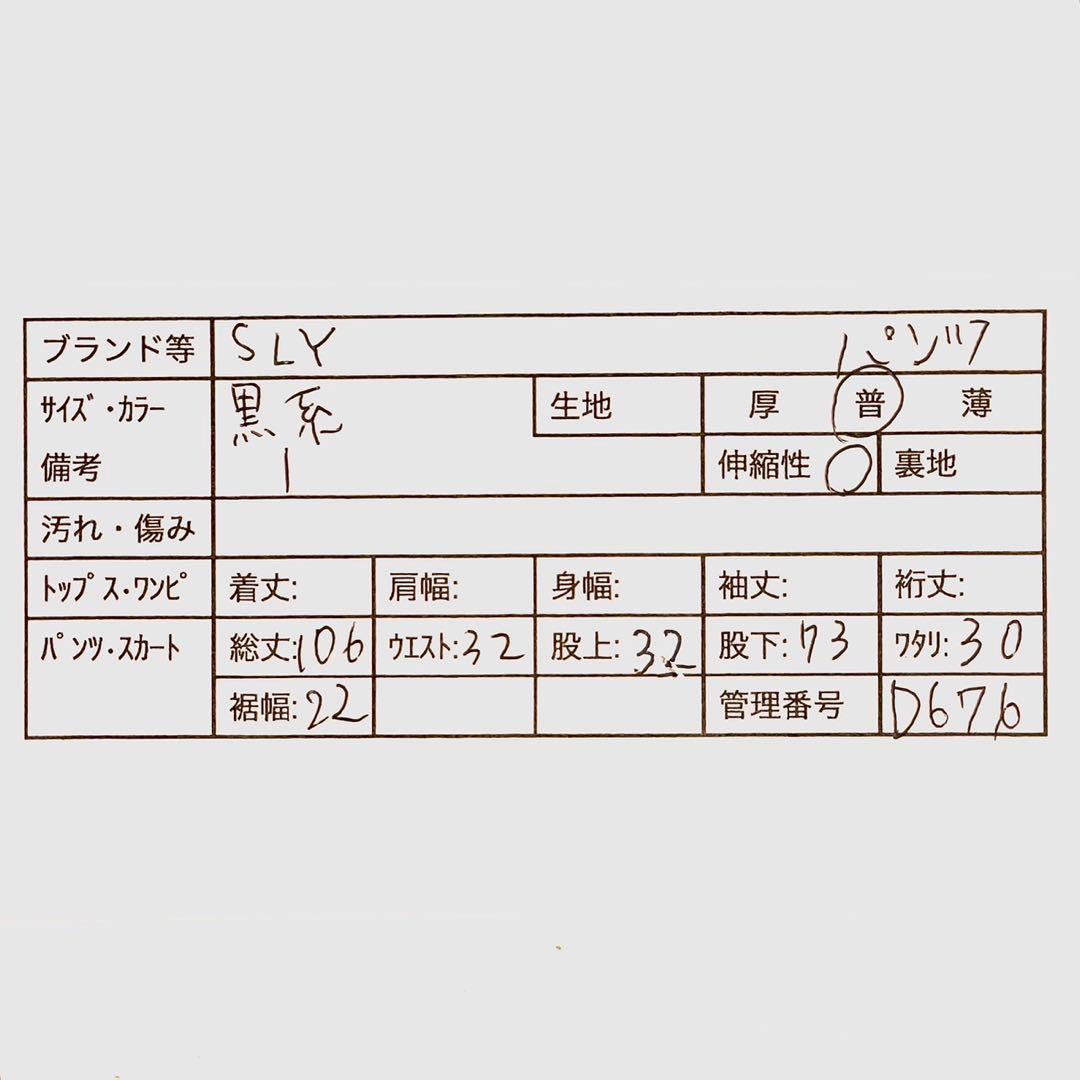 ブランド等 SLY パンツ
サイズ・カラー 黒系 生地 厚 普 薄
備考 1 伸縮性 ○ 裏地
汚れ・傷み
トップス・ワンピ 着丈: 肩幅: 身幅: 袖丈: 裄丈:
パンツ・スカート 総丈:106 ウエスト:32 股上:32 股下:73 ワタリ:30
裾幅:22 管理番号 D676